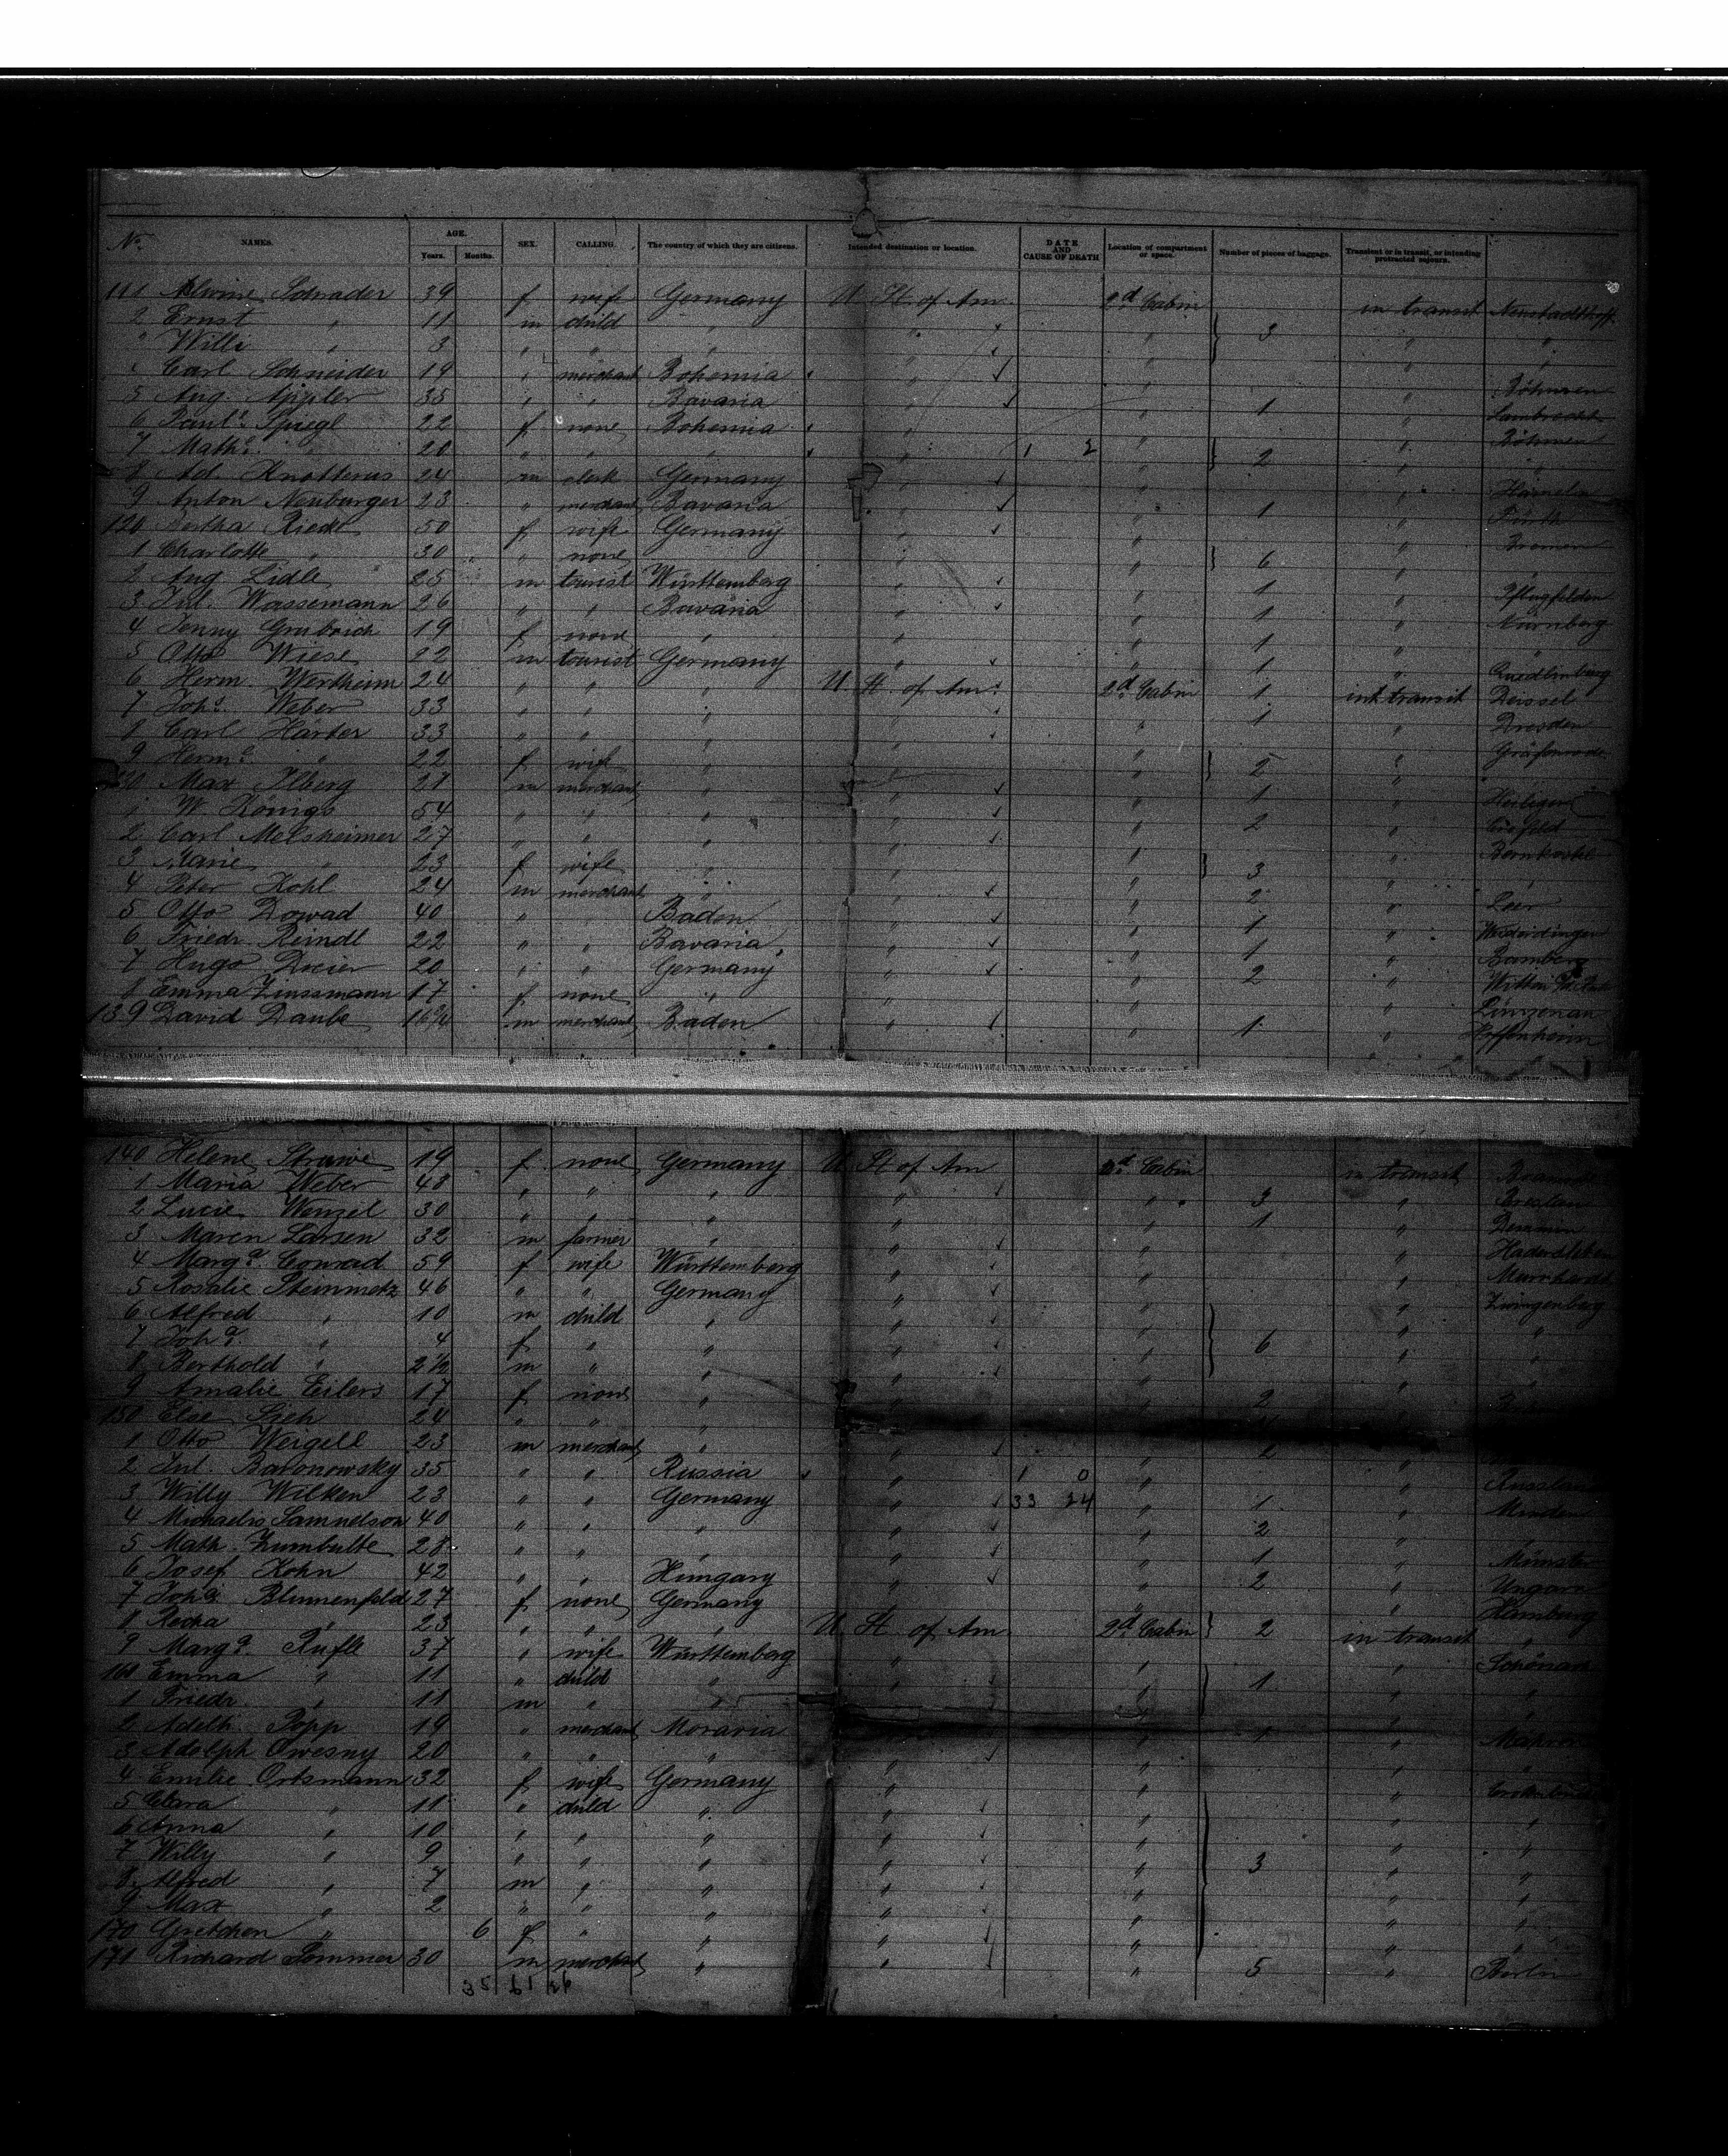 No. NAMES. AGE. Years. Months. SEX. CALLING. The country of which they are citizens. Intended destination or location. DATE AND CAUSE OF DEATH Location of compartment or space. Number of pieces of baggage. Transient or in transit, or intending protracted sojourn.
111 Alwine Schrader 39 f wife Germany U. St. of Am. 2d Cabin in transit
2 Ernst " 11 m child " " " 3 " "
" Willi " 3 " " " " " " "
Carl Schneider 19 " merchant Bohemia " " " Böhmen
5 Aug. Appler 35 " " Bavaria " " 1 " Lambrecht
6 Paula Spiegl 22 f none Bohemia " " " Böhmen
7 Mathe. " 20 " " " " 1 2 " 2 " "
8 Ad. Knotterus 24 m clerk Germany " " " Hameln
9 Anton Neuburger 23 " merchant Bavaria " " 1 " Fürth
120 Bertha Riedt 50 f wife Germany " " " Bremen
1 Charlotte " 30 " none " " " 6 " "
2 Aug Lidle 25 m tourist Württemberg " " 1 " Pflugfelden
3 Jul. Wassemann 26 " " Bavaria " " 1 " Nürnberg
4 Jenny Grabrich 19 f none " " " 1 " "
5 Otto Wiese 22 m tourist Germany " " 1 " Quedlinburg
6 Herm. Wertheim 24 " " " U. St. of Am. 2d Cabin 1 in transit Deissel
7 Johs. Weber 33 " " " " " 1 " Dresden
8 Carl Härter 33 " " " " " " Gräfenrode
9 Herma. " 22 f wife " " " 2 " "
130 Max Ilberg 21 m merchant " " " 1 "
1 W. Königs 54 " " " " " 2 " Crefeld
2 Carl Melsheimer 27 " " " " " " Bernkastel
3 Marie " 23 f wife " " " 3 " "
4 Peter Kohl 24 m merchant " " " 2 "
5 Otto Dowad 40 " " Baden " " 1 "
6 Friedr. Reindl 22 " " Bavaria " " 1 " Bamberg
7 Hugo Dreier 20 " " Germany " " 2 " Witten
8 Emma Zinssmann 17 f none " " " "
139 David Daube 16 3/4 m merchant Baden " " 1 " Hoffenheim
140 Helene Struwe 19 f none Germany U. St of Am 2d Cabin in transit
1 Maria Weber 48 " " " " " 3 " Breslau
2 Lucie Wenzel 30 " " " " " 1 " Demmin
3 Maren Larsen 32 m farmer " " " " Hadersleben
4 Marga. Conrad 59 f wife Württemberg " " " Murrhardt
5 Rosalie Steinmetz 46 " " Germany " " " Zwingenberg
6 Alfred " 10 m child " " " " "
7 Joha. " 4 f " " " " 6 " "
8 Berthold " 2 1/2 m " " " " " "
9 Amalie Eilers 17 f none " " " 2 "
150 Else Sieh 24 " " " " "
1 Otto Weigell 23 m merchant " " " 2 "
2 Jul. Baronowsky 35 " " Russia " 1 0 " " Russland
3 Willy Wilken 23 " " Germany " 33 24 " 1 " Minden
4 Michaelis Samuelson 40 " " " " " 2 "
5 Math. Zumbulte 28 " " " " " 1 " Münster
6 Josef Kohn 42 " " Hungary " " 2 " Ungarn
7 Joha. Blumenfeld 27 f none Germany " " Hamburg
8 Recha " 23 " " " U. St. of Am 2d Cabin 2 in transit "
9 Marga. Rufle 37 " wife Württemberg " " " Schönaich
160 Emma " 11 " child " " " 1 " "
1 Friedr. " 11 m " " " " " "
2 Adelh. Popp 19 " merchant Moravia " " 1 " Mähren
3 Adolph Owesny 20 " " " " " " "
4 Emilie Ortsmann 32 f wife Germany " " "
5 Clara " 11 " child " " " " "
6 Anna " 10 " " " " " " "
7 Willy " 9 " " " " " 3 " "
8 Alfred " 7 m " " " " " "
9 Max " 2 " " " " " " "
170 Gretchen " 6 f " " " " " "
171 Richard Sommer 30 m merchant " " " 5 " Berlin
35 61 26